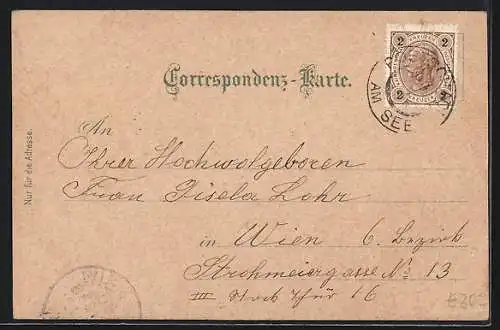 Correspondenz-Karte.
2 2
2 2
AM SEE
Nur für die Adresse.
An
Ihrer Hochwolgeboren
Frau Gisela Lohr
in Wien 6. Bezirk
Strohmeiergasse No 13
III Stock Thür 16
WIEN